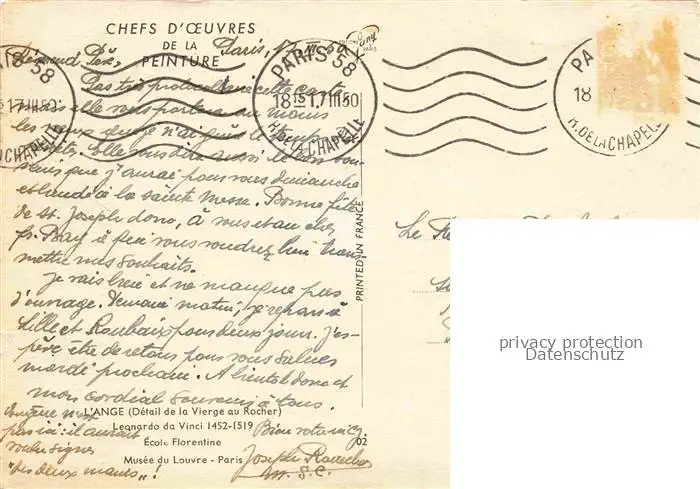 CHEFS D'ŒUVRES
DE LA
PEINTURE
Paris, 17
PARIS 58
18 15 17 III 50
R. DE LA CHAPELLE
PARIS 58
17 III 50
LA CHAPELLE
PA
18
R. DE LA CHAPELLE
Révérend Père,
Pas très cette carte
mais elle vous portera au moins
les vœux que je n'ai le temps
Elle vous dira aussi le bon
que j'aurai pour vous dimanche
et lundi à la sainte messe. Bonne fête
de St. Joseph donc, à vous et au cher
fr. à qui vous voudrez bien trans
mettre mes souhaits.
Je vais bien et ne manque pas
d'ouvrage. Demain matin, je repars à
Lille et Roubaix pour deux jours. J'es-
père être de retour pour vous saluer
mardi prochain. A bientôt donc et
mon cordial souvenir à tous.
L'ANGE (Détail de la Vierge au Rocher)
Leonardo da Vinci 1452-1519
École Florentine
Musée du Louvre - Paris
02
Bien vôtre
Joseph
m. s. c.
Eugène n'est
pas ici: il aurait
voulu signer
"des deux mains"!
PRINTED IN FRANCE
Le
privacy protection
Datenschutz